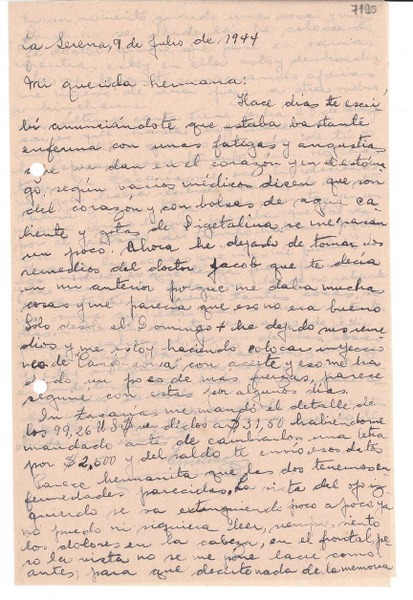 7195
La Serena, 9 de Julio de 1944
Mi querida hermana:
Hace días te escri-
bí anunciándote que estaba bastante
enferma con unas fatigas y angustias
que me dan en el corazón y en el estóma-
go, según varios médicos dicen que son
del corazón y con bolsas de agua ca-
liente y gotas de Digetalina se me pasan
un poco. Ahora he dejado de tomar los
remedios del doctor Jacob que te decía
en mi anterior porque me daba muchas
cosas y me parecía que eso no era bueno
Sólo desde el Domingo he dejado sus reme-
dios y me estoy haciendo colocar inyeccio
nes de con aceite y eso me ha
dado un poco de mas fuerzas, parece
seguiré con estas por algunos días.
In tasanía me mandó el detalle de
los 99,26 U.S.$ vendidos a $ 31,50 habiéndome
mandado antes de cambiarlos una letra
por $ 2,600 y del saldo te envío esos datos
Parece hermanita que las dos tenemos en
fermedades parecidas. La vista del ojo iz-
quierdo se va extinguiendo poco a poco, ya
no puedo ni siquiera leer, siempre siento
los dolores en la cabeza, en el frontal, pe-
ro la vista no se me pone lacre como
antes; para que decirte nada de la memoria